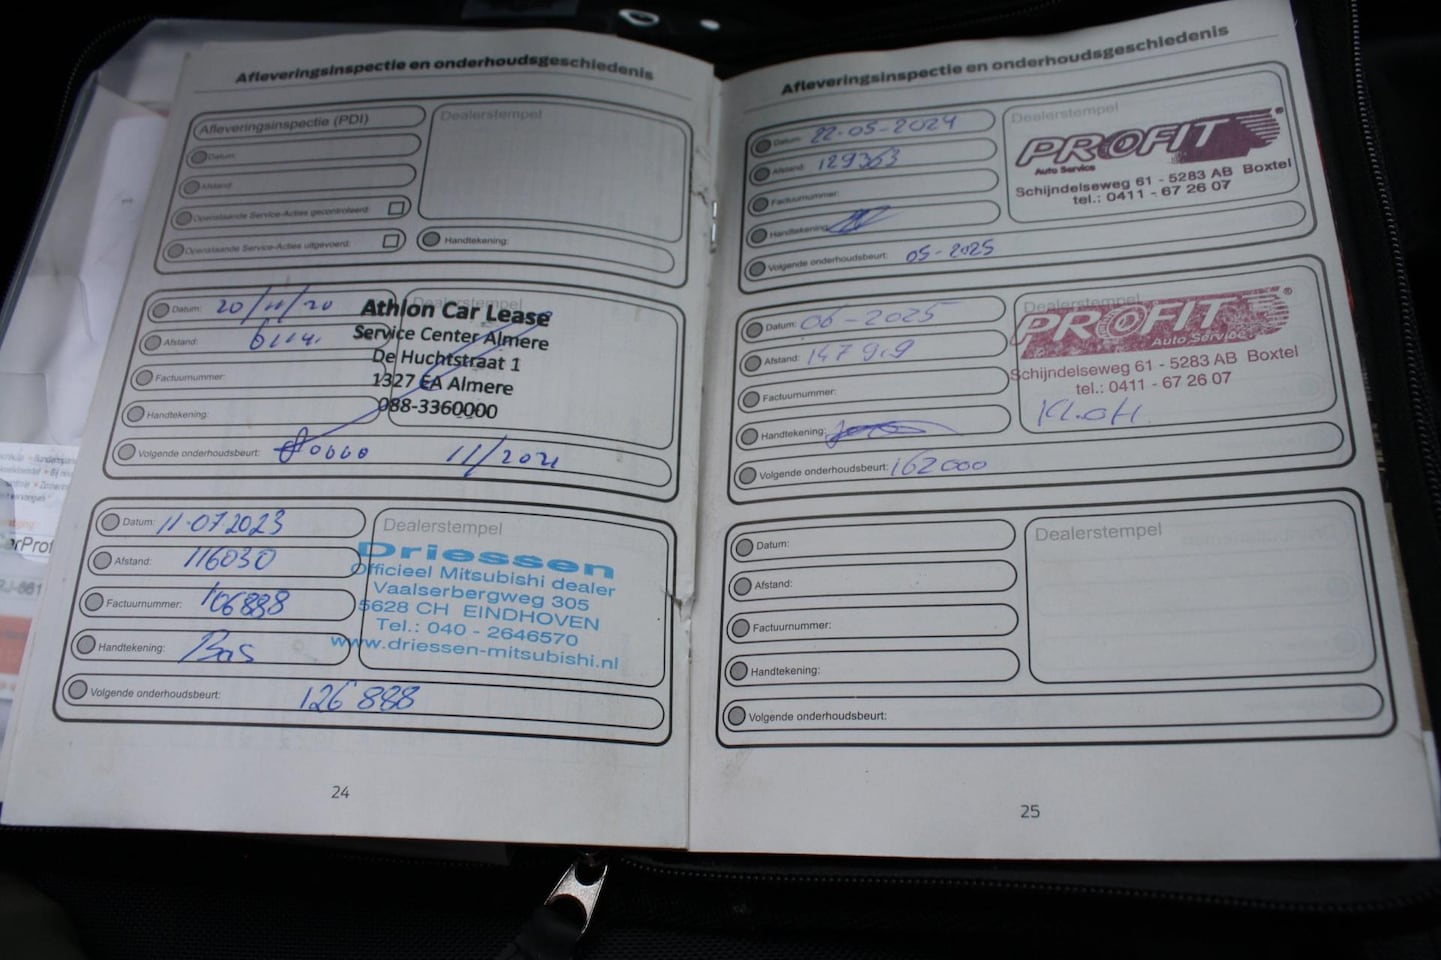 Afleveringsinspectie en onderhoudsgeschiedenis
Afleveringsinspectie (PDI)
Dealerstempel
Datum:
Afstand:
Openstaande Service-Acties gecontroleerd:
Openstaande Service-Acties uitgevoerd:
Handtekening:
Datum: 20/11/20
Dealerstempel
Athlon Car Lease
Service Center Almere
De Huchtstraat 1
1327 EA Almere
088-3360000
Afstand:
Factuurnummer:
Handtekening:
Volgende onderhoudsbeurt: 11/2021
Datum: 11-07 2023
Afstand: 116030
Factuurnummer: 106888
Handtekening: Bas
Dealerstempel
Driessen
Officieel Mitsubishi dealer
Vaalserbergweg 305
5628 CH EINDHOVEN
Tel.: 040 - 2646570
www.driessen-mitsubishi.nl
Volgende onderhoudsbeurt: 126 888
24
Afleveringsinspectie en onderhoudsgeschiedenis
Datum: 22-05-2024
Afstand: 129363
Factuurnummer:
Handtekening:
Dealerstempel
PROFIT®
Auto Service
Schijndelseweg 61 - 5283 AB Boxtel
tel.: 0411 - 67 26 07
Volgende onderhoudsbeurt: 05-2025
Datum: 06-2025
Afstand: 147909
Factuurnummer:
Handtekening:
Dealerstempel
PROFIT®
Auto Service
Schijndelseweg 61 - 5283 AB Boxtel
tel.: 0411 - 67 26 07
Volgende onderhoudsbeurt: 162000
Datum:
Afstand:
Factuurnummer:
Handtekening:
Dealerstempel
Volgende onderhoudsbeurt:
25